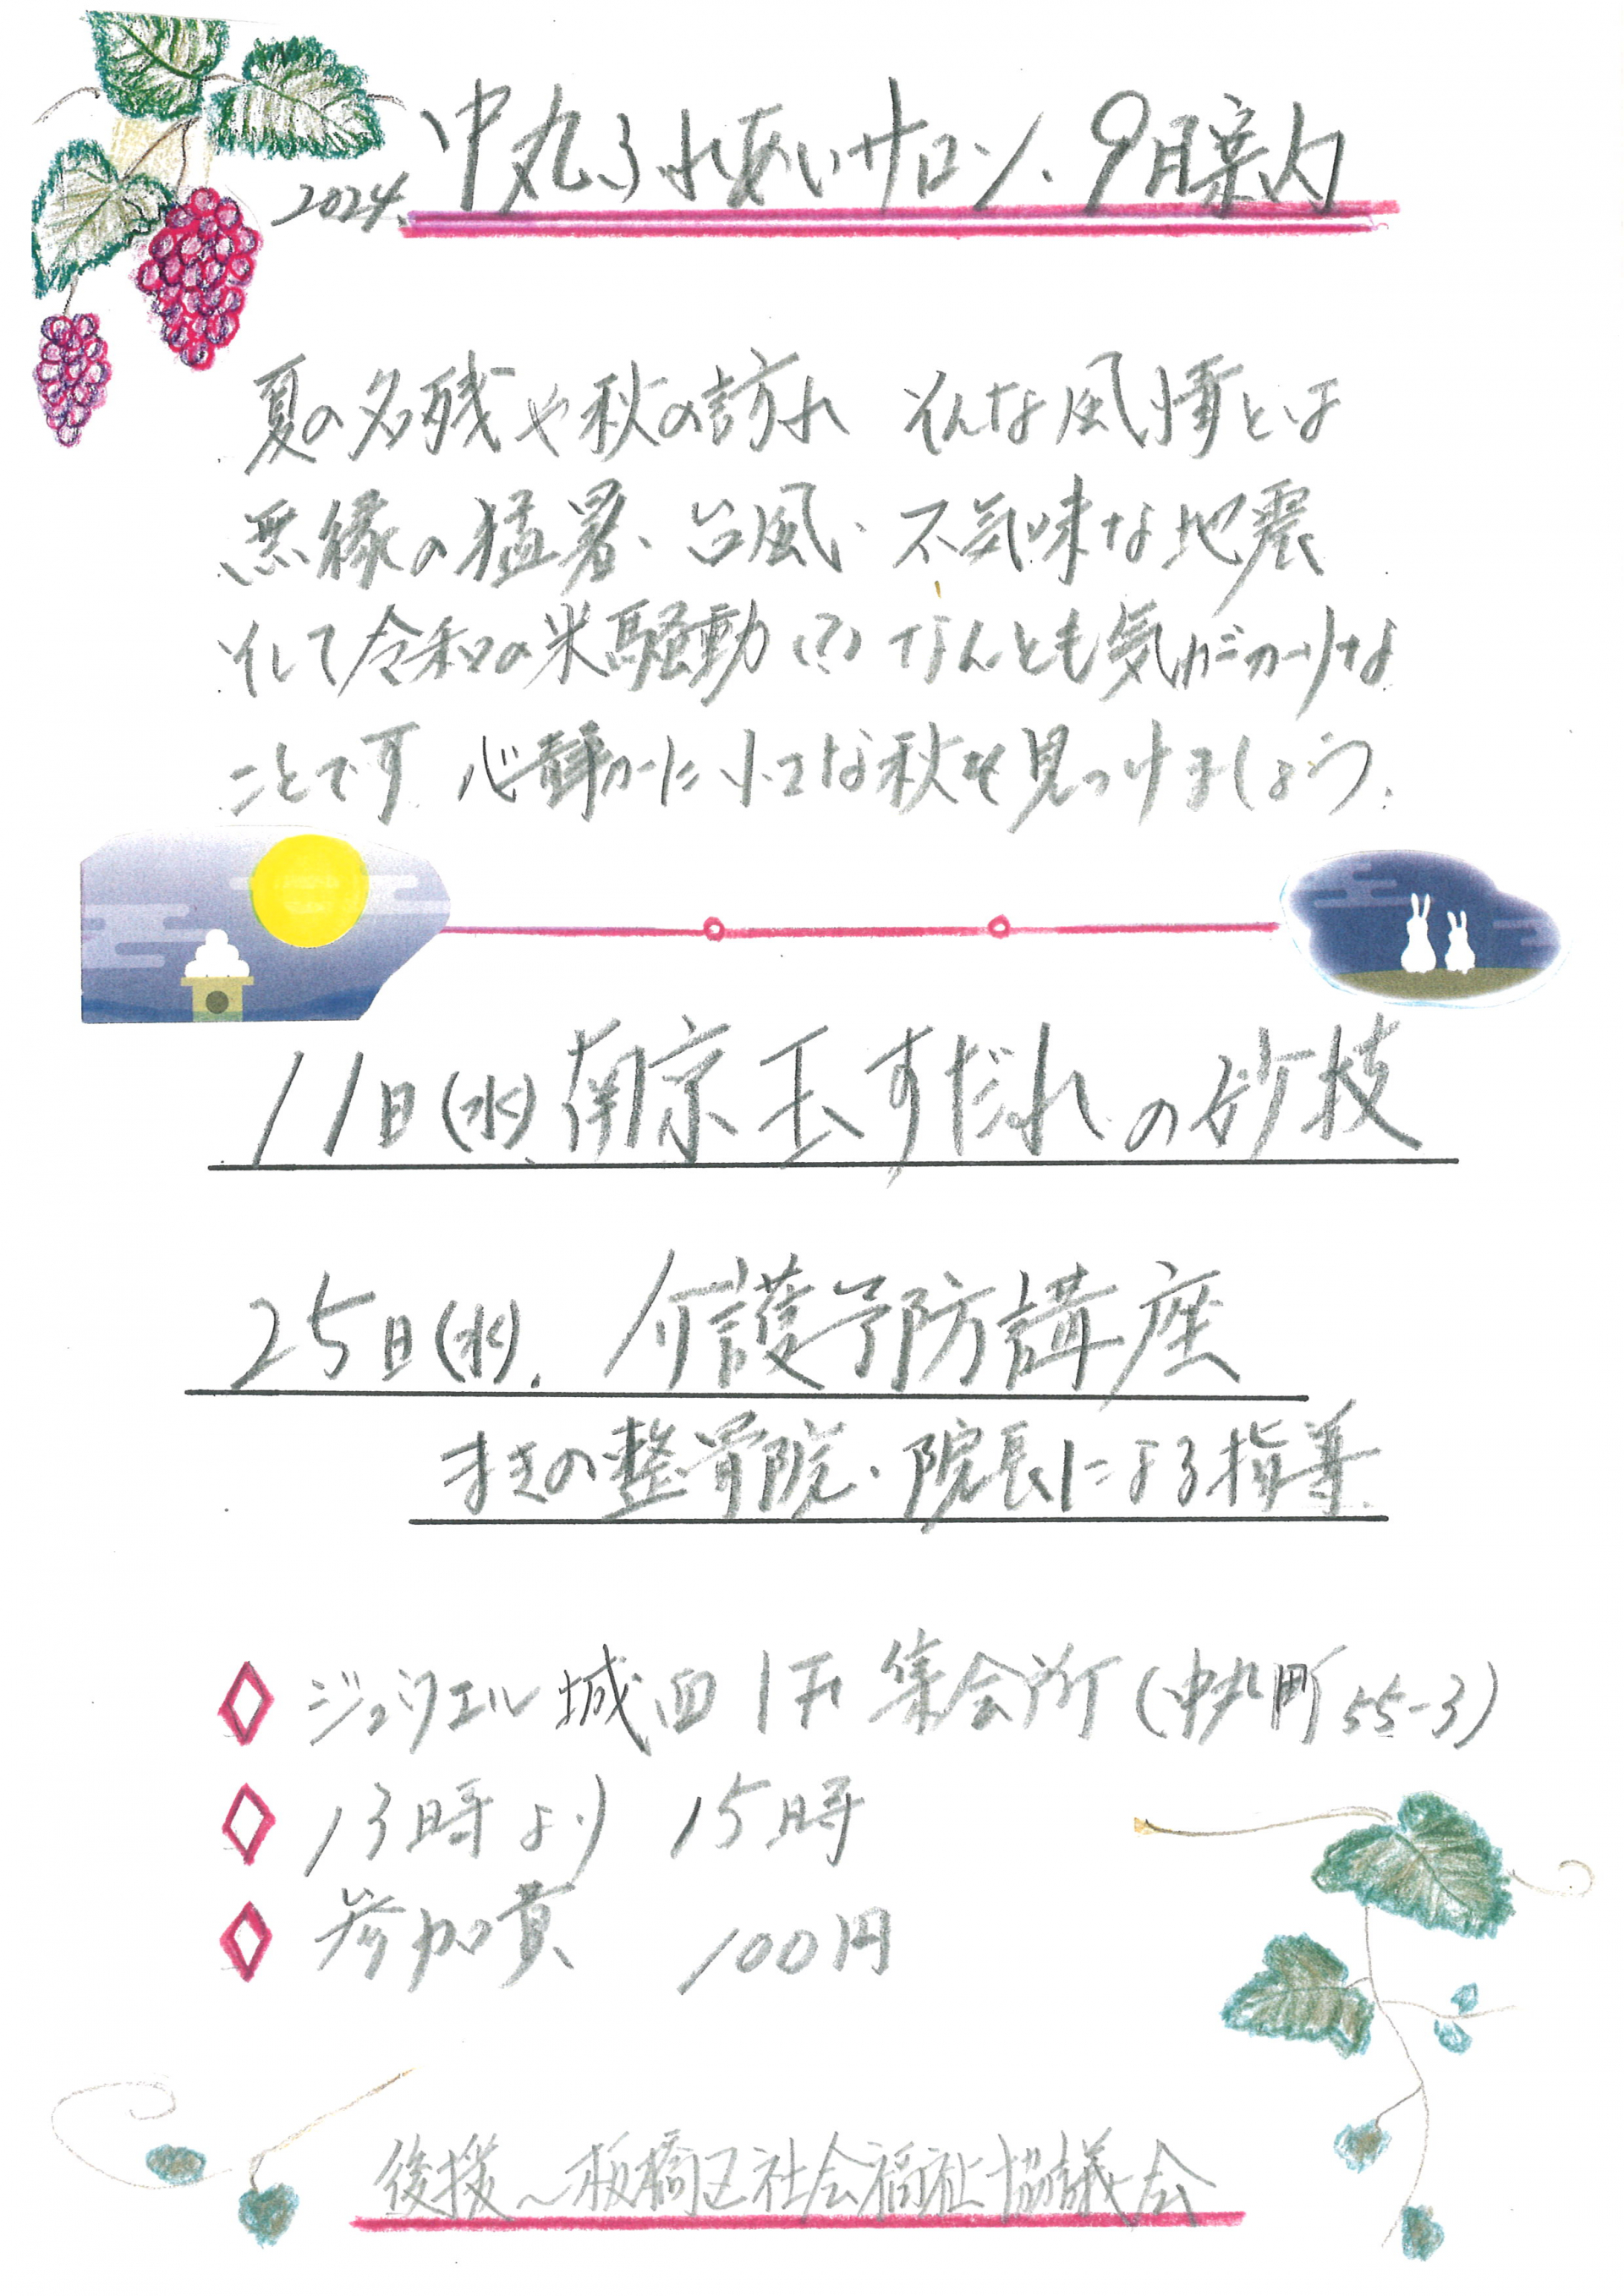 2024. 中丸ふれあいサロン. 9月案内
夏の名残や秋の訪れ そんな風情とは
無縁の猛暑、台風、不気味な地震
そして令和の米騒動(?) なんとも気がかりな
ことです 心静かに小さな秋を見つけましょう.
11日(水) 南京玉すだれの妙技
25日(水). 介護予防講座
まきの整骨院・院長による指導
ジュウエル城西1F 集会所 (中丸町55-3)
13時より 15時
参加費 100円
後援〜板橋区社会福祉協議会